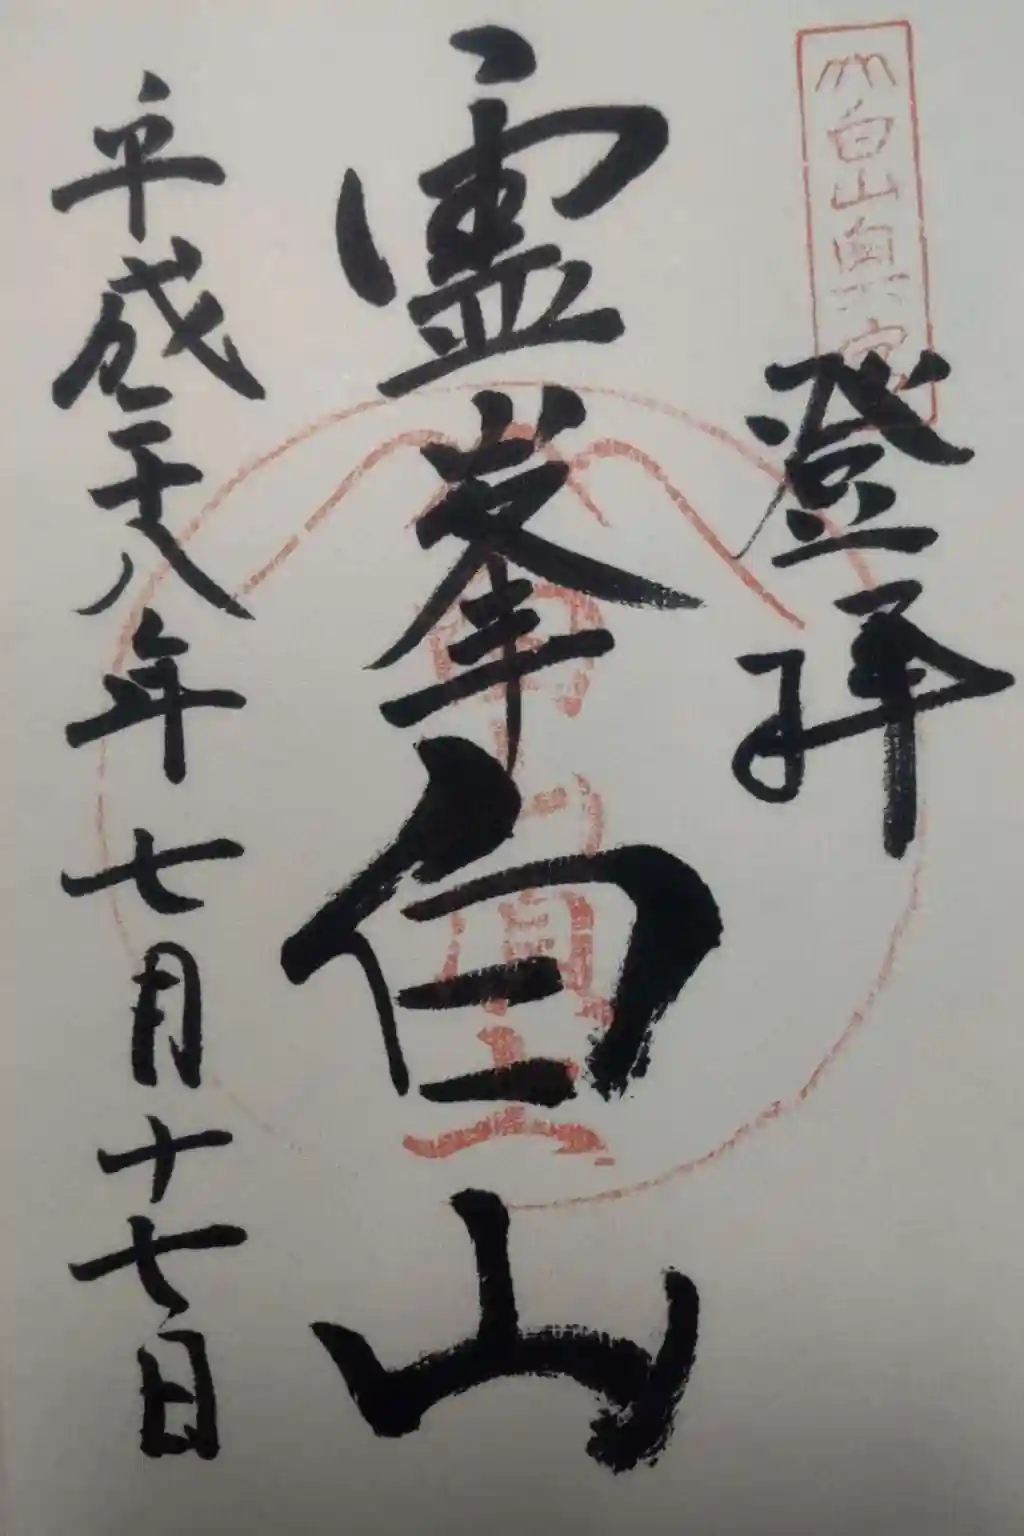 白山奥宮
登拝
霊峯白山
白山奥宮
平成二十八年七月十七日